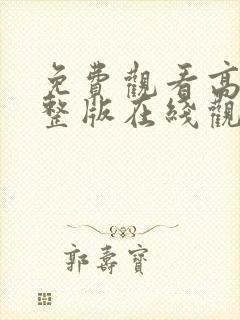 免費觀看高
整版在綫觀
郭壽寶